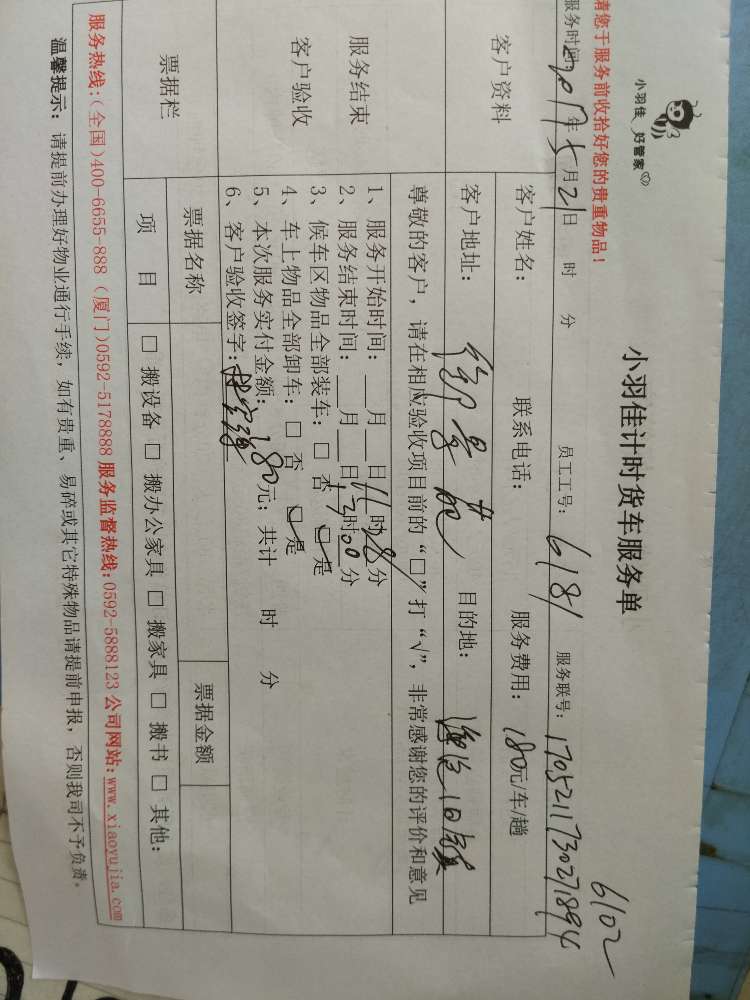 小羽佳 好管家
小羽佳计时货车服务单
6102
请您于服务前收拾好您的贵重物品！
服务时间：2017年5月21日 时 分 员工工号：6181 服务联号：1705211730271894
客户资料
客户姓名： 联系电话： 服务费用：180元/车/趟
客户地址： 目的地：
服务结束
客户验收
尊敬的客户，请在相应验收项目前的“□”打“√”，非常感谢您的评价和意见
1、服务开始时间：___月___日11时38分
2、服务结束时间：___月___日13时00分
3、候车区物品全部装车：□ 否 □是
4、车上物品全部卸车：□ 否 □是
5、本次服务实付金额：180元；共计 时 分
6、客户验收签字：
票据栏
票据名称 票据金额
项 目 □ 搬设备 □ 搬办公家具 □ 搬家具 □ 搬书 □ 其他：
服务热线：(全国)400-6655-888 (厦门)0592-5178888 服务监督热线：0592-5888123 公司网站：www.xiaoyujia.com
温馨提示：请提前办理好物业通行手续，如有贵重、易碎或其它特殊物品请提前申报，否则我司不予负责。